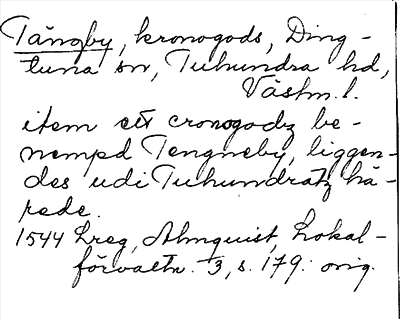 Tängby, kronogods, Ding-
tuna sn, Tuhundra hd,
Västm. l.
item ett cronogodz be-
nempd Tengneby, liggen-
des udi Tuhundratz hä-
rede.
1544 Lreg, Almquist, Lokal-
förvaltn. 3, s. 179: orig.